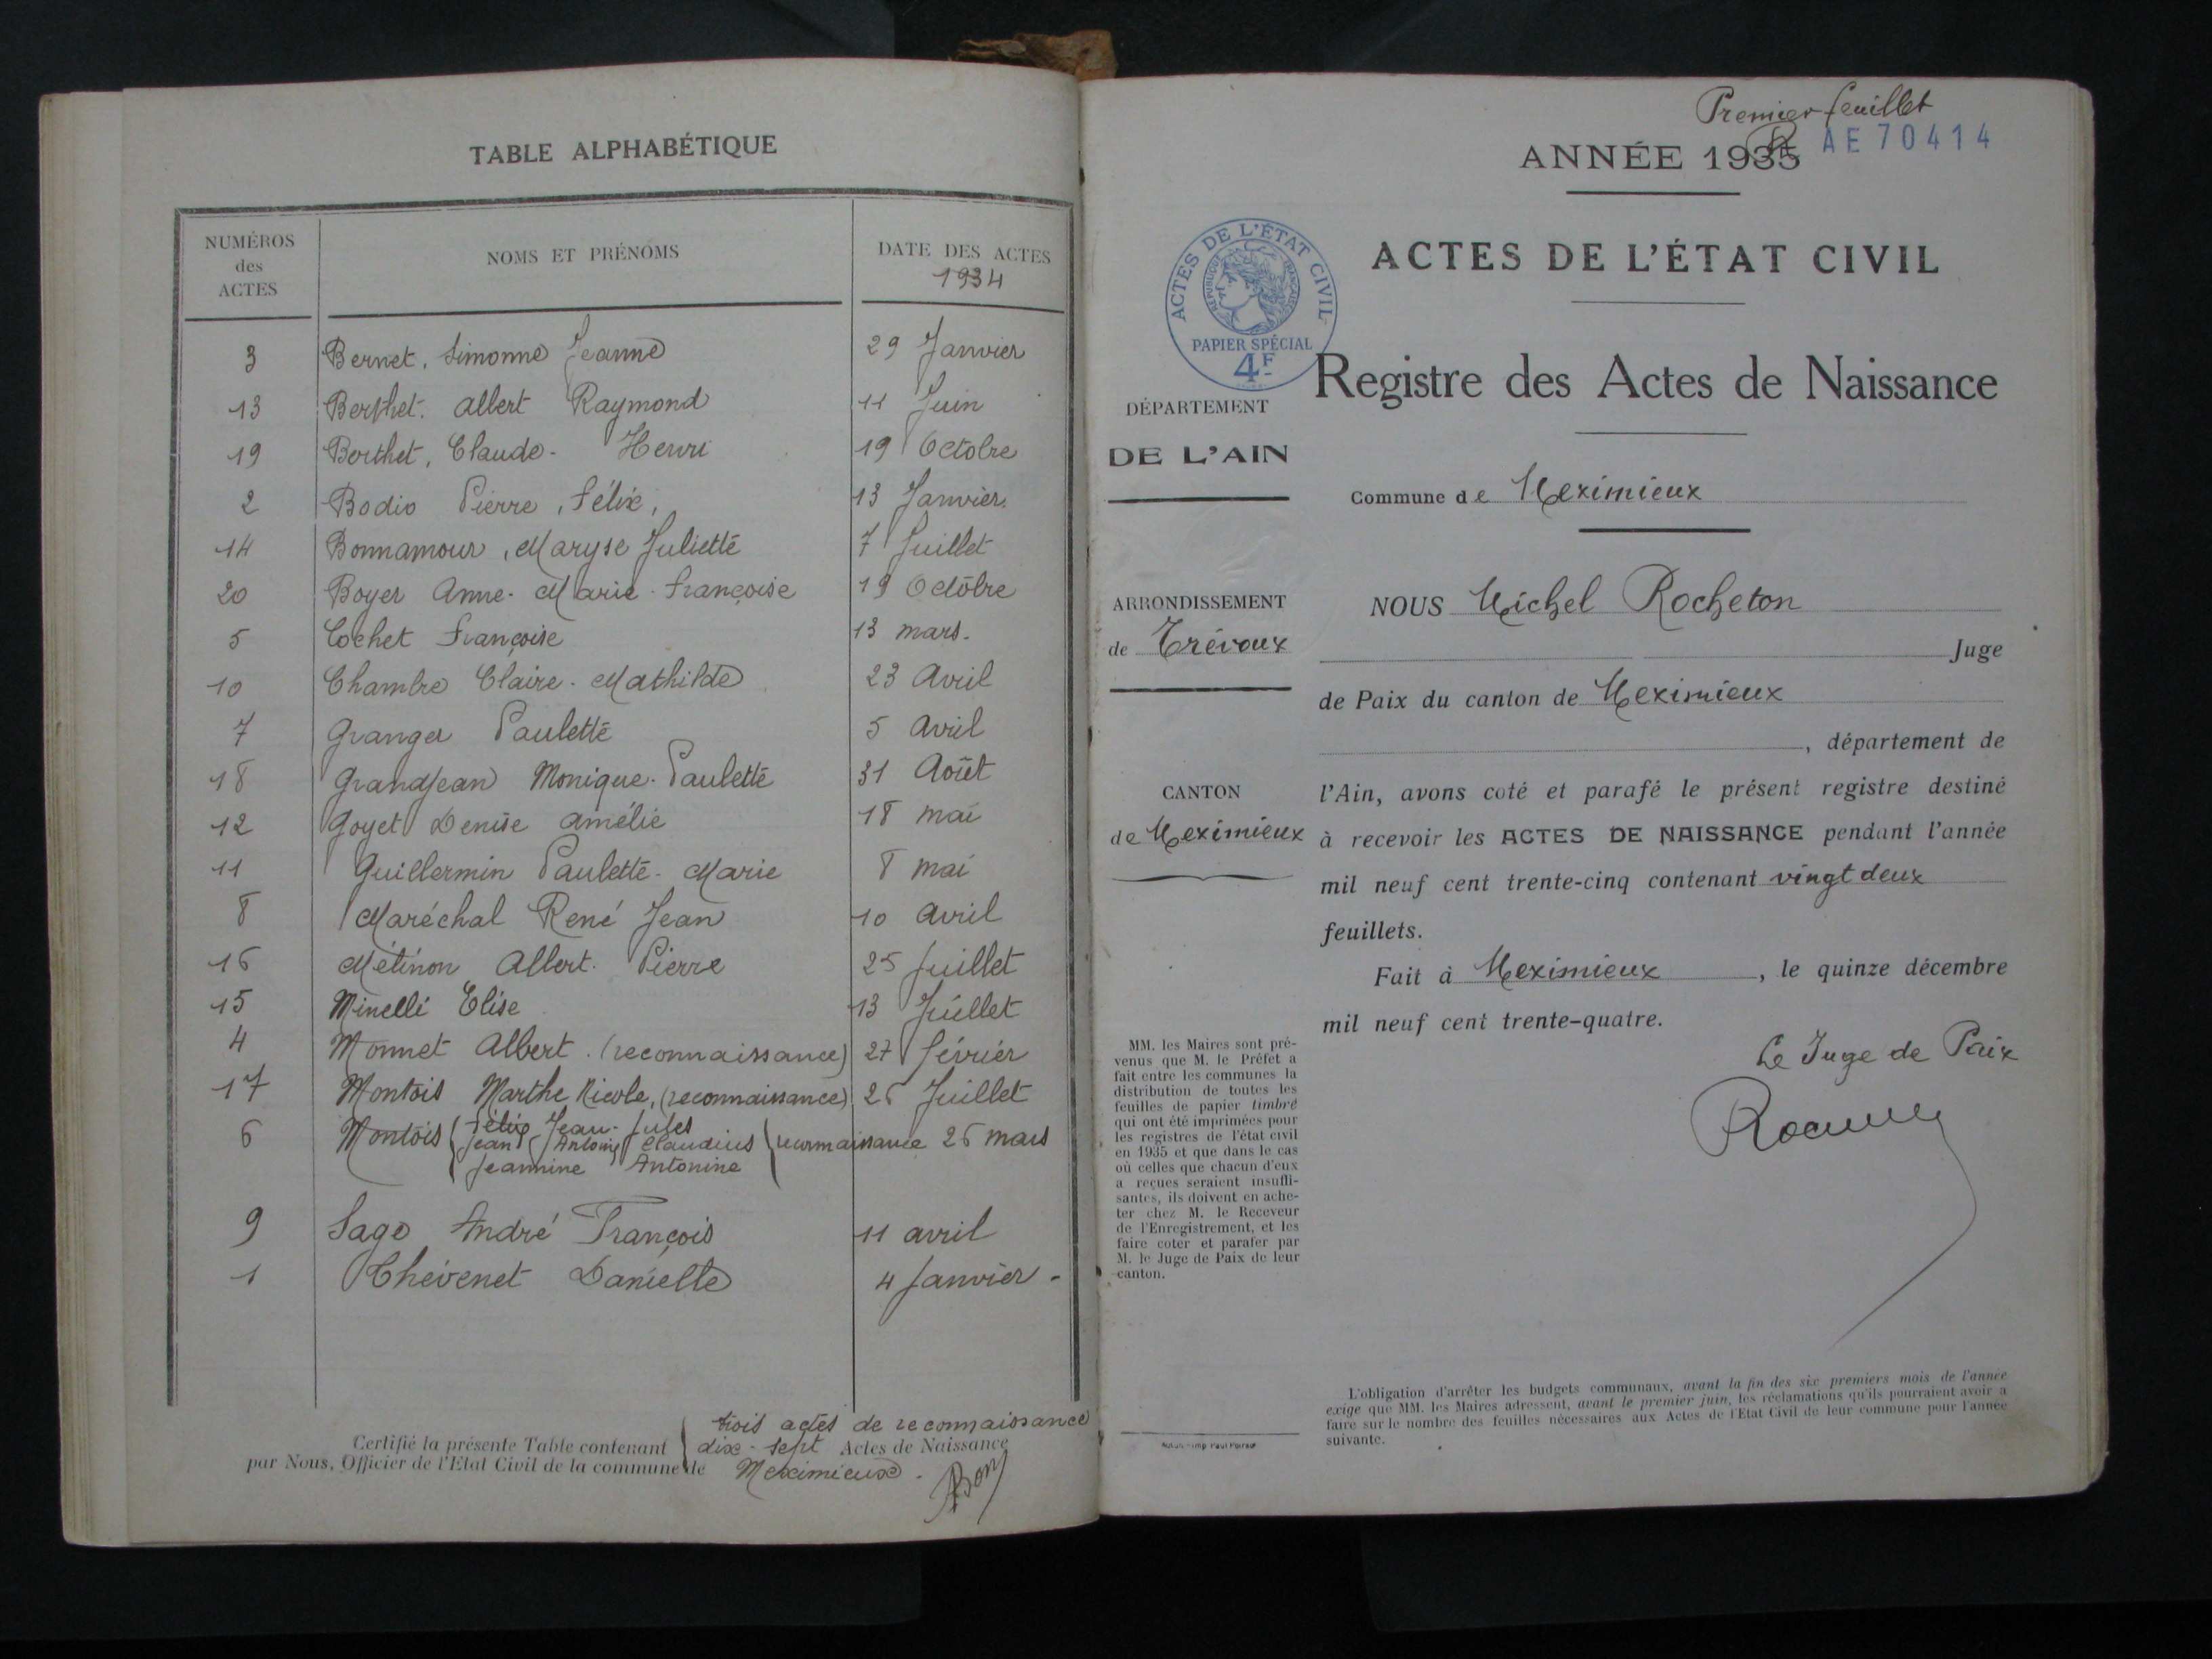 TABLE ALPHABÉTIQUE
NUMÉROS
des
ACTES
NOMS ET PRÉNOMS
DATE DES ACTES
1934
3 Bernet, Simonne Jeanne 29 Janvier
13 Berthet. Albert Raymond 11 Juin
19 Berthet, Claude - Henri 19 Octobre
2 Bodio Pierre, Félix, 13 Janvier.
14 Bonnamour, Maryse Juliette 7 Juillet
20 Boyer Anne-Marie-Françoise 19 Octobre
5 Cochet Françoise 13 mars.
10 Chambre Claire-Mathilde 23 Avril
7 Granger Paulette 5 Avril
18 Grandjean Monique-Paulette 31 Août
12 Goyet Denise Amélie 18 mai
11 Guillermin Paulette-Marie 8 mai
8 Maréchal René Jean 10 Avril
16 Métinon Albert-Pierre 25 Juillet
15 Minelli Elise 13 Juillet
4 Monnet Albert. (reconnaissance) 27 Février
17 Montois Marthe Nicole, (reconnaissance) 26 Juillet
Félix Jean-Jules
6 Montois Jean Antoine Claudius reconnaissance 26 mars
Jeannine Antonine
9 Sage André François 11 avril
1 Thévenet Danielle 4 Janvier -
trois actes de reconnaissance
Certifié la présente Table contenant dix-sept Actes de Naissance
par Nous, Officier de l'Etat Civil de la commune de Meximieux.
Premier feuillet
ANNÉE 1935
AE 70414
ACTES DE L'ÉTAT CIVIL
RÉPUBLIQUE FRANÇAISE
PAPIER SPÉCIAL
4F
ACTES DE L'ÉTAT CIVIL
Registre des Actes de Naissance
DÉPARTEMENT
DE L'AIN
Commune de Meximieux
ARRONDISSEMENT
de Trévoux
NOUS Michel Rocheton
Juge
de Paix du canton de Meximieux
, département de
CANTON
de Meximieux
l'Ain, avons coté et parafé le présent registre destiné
à recevoir les ACTES DE NAISSANCE pendant l'année
mil neuf cent trente-cinq contenant vingt deux
feuillets.
Fait à Meximieux, le quinze décembre
mil neuf cent trente-quatre.
Le Juge de Paix
MM. les Maires sont pré-
venus que M. le Préfet a
fait entre les communes la
distribution de toutes les
feuilles de papier timbré
qui ont été imprimées pour
les registres de l'état civil
en 1935 et que dans le cas
où celles que chacun d'eux
a reçues seraient insuffi-
santes, ils doivent en ache-
ter chez M. le Receveur
de l'Enregistrement, et les
faire coter et parafer par
M. le Juge de Paix de leur
canton.
L'obligation d'arrêter les budgets communaux, avant la fin des six premiers mois de l'année
exige que MM. les Maires adressent, avant le premier juin, les réclamations qu'ils pourraient avoir à
faire sur le nombre des feuilles nécessaires aux Actes de l'Etat Civil de leur commune pour l'année
suivante.